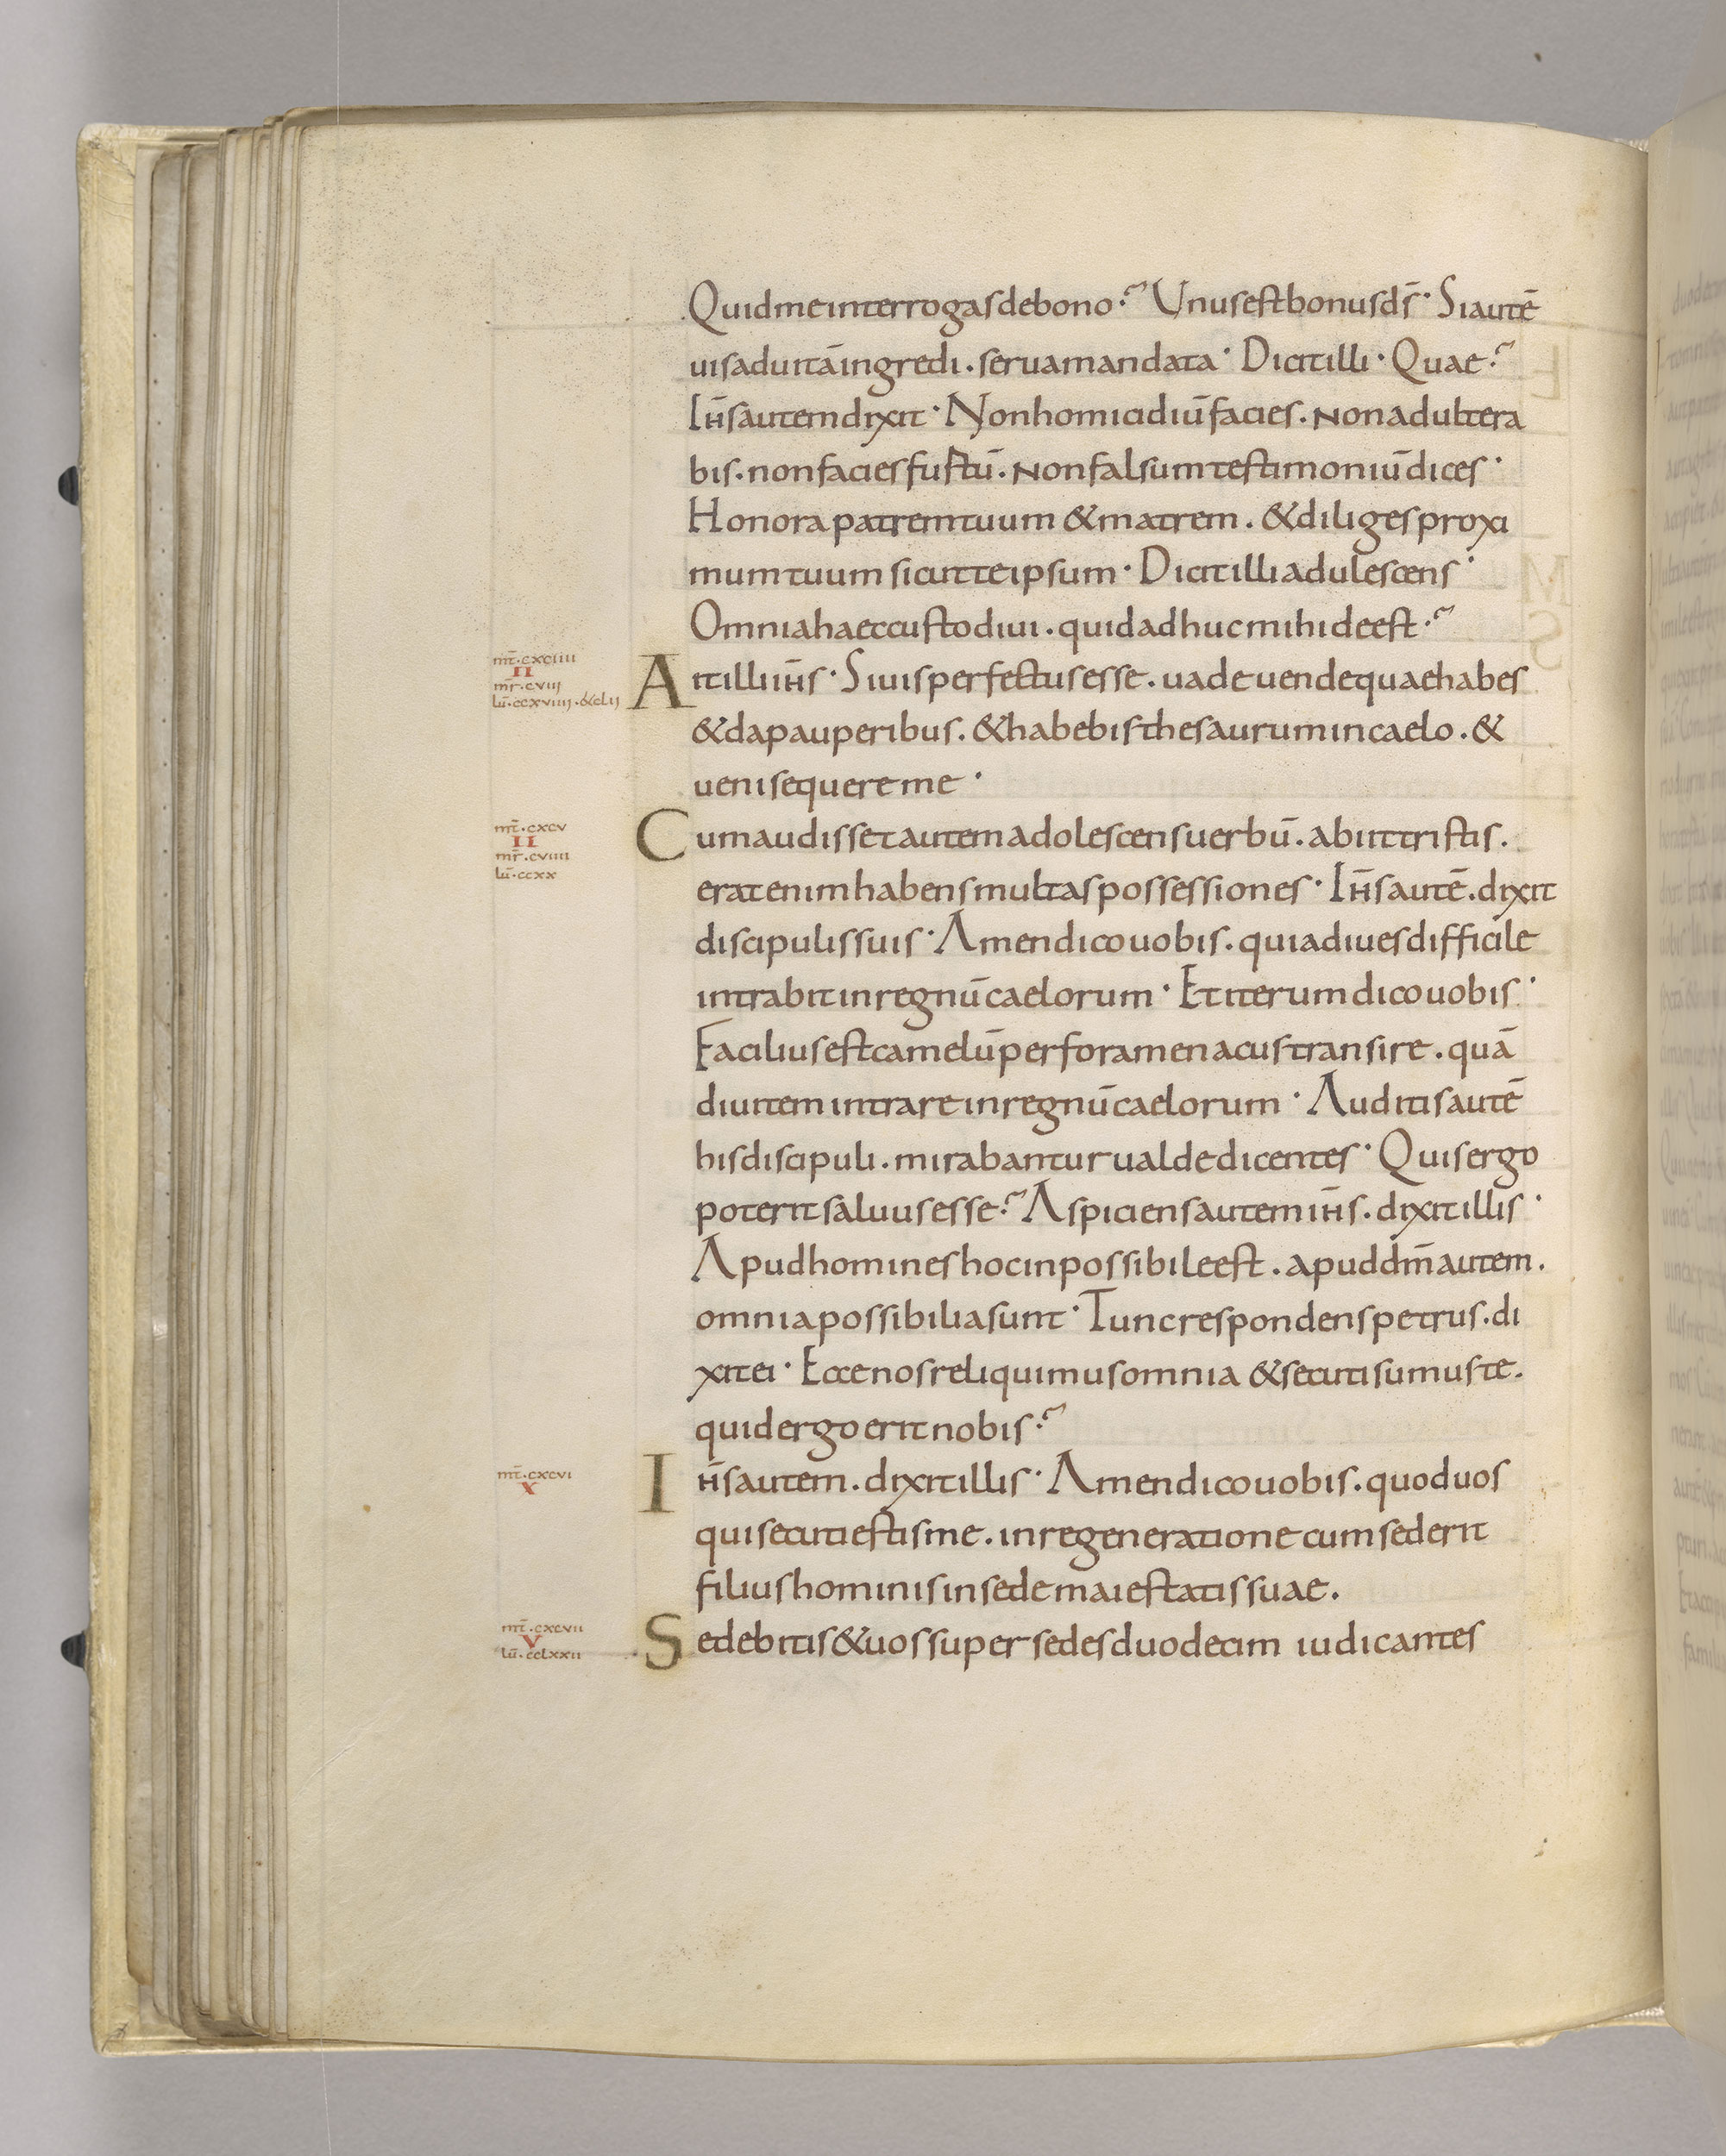 Quid me interrogas de bono? Unus est bonus d̄s· Si autē
uis ad uitā ingredi. serua mandata· Dicit illi· Quae?
Ih̄s autem dixit· Non homicidiū facies. non adultera
bis. non facies fustū. non falsum testimoniū dices·
Honora patrem tuum & matrem. & diliges proxi
mum tuum sicut te ipsum· Dicit illi adulescens·
Omnia haec custodiui. quid adhuc mihi deest?
mt̄·cxciiii
II
mr̄·cviij
lū·ccxviiij·&clij
Ait illi ih̄s· Si uis perfectus esse. uade uende quae habes
& da pauperibus. & habebis thesaurum in caelo. &
ueni sequere me·
mt̄·cxcv
II
mr̄·cviiii
lū·ccxx
Cum audisset autem adolescens uerbū. abiit tristis.
erat enim habens multas possessiones· Ih̄s autē. dixit
discipulis suis· Amen dico uobis. quia diues difficile
intrabit in regnū caelorum· Et iterum dico uobis·
Facilius est camelū per foramen acus transire. quā
diuitem intrare in regnū caelorum· Auditis autē
his discipuli. mirabantur ualde dicentes· Quis ergo
poterit saluus esse? Aspiciens autem ih̄s. dixit illis·
Apud homines hoc inpossibile est. apud dm̄ autem.
omnia possibilia sunt· Tunc respondens petrus. di
xit ei· Ecce nos reliquimus omnia & secuti sumus te.
quid ergo erit nobis?
mt̄·cxcvi
X
Ih̄s autem. dixit illis· Amen dico uobis. quod uos
qui secuti estis me. in regeneratione cum sederit
filius hominis in sede maiestatis suae.
mt̄·cxcvii
V
lū·cclxxii
Sedebitis & uos super sedes duodecim iudicantes